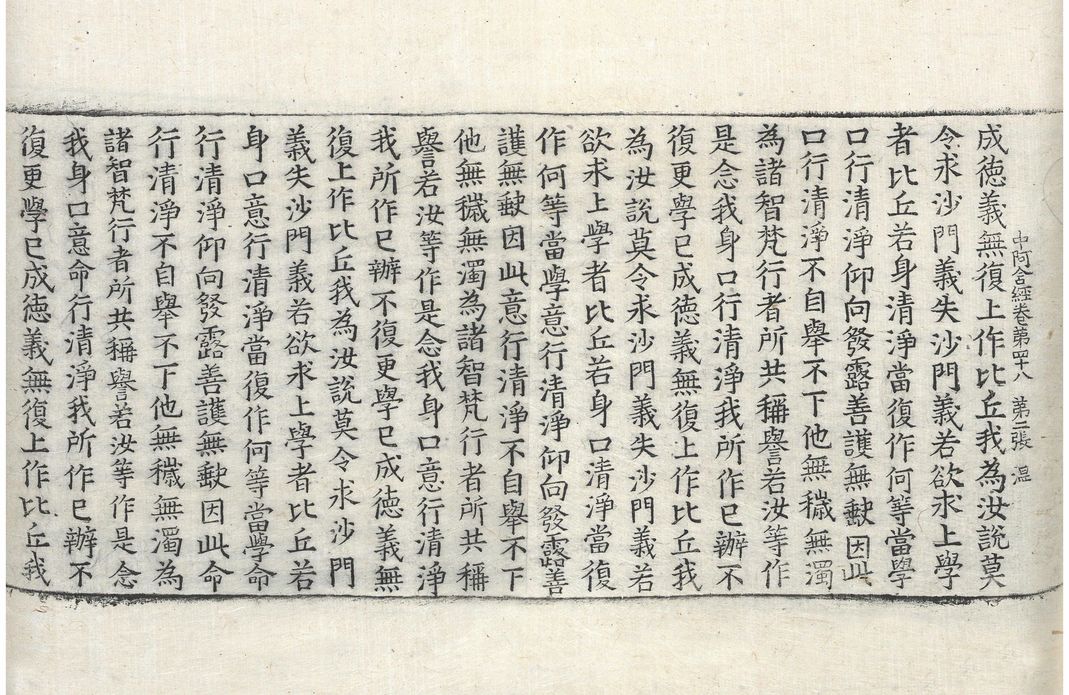 中阿含經卷第四十八 第二張 溫
成德義無復上作比丘我為汝說莫
令求沙門義失沙門義若欲求上學
者比丘若身清淨當復作何等當學
口行清淨仰向發露善護無缺因此
口行清淨不自舉不下他無穢無濁
為諸智梵行者所共稱譽若汝等作
是念我身口行清淨我所作已辦不
復更學已成德義無復上作比丘我
為汝說莫令求沙門義失沙門義若
欲求上學者比丘若身口清淨當復
作何等當學意行清淨仰向發露善
護無缺因此意行清淨不自舉不下
他無穢無濁為諸智梵行者所共稱
譽若汝等作是念我身口意行清淨
我所作已辦不復更學已成德義無
復上作比丘我為汝說莫令求沙門
義失沙門義若欲求上學者比丘若
身口意行清淨當復作何等當學命
行清淨仰向發露善護無缺因此命
行清淨不自舉不下他無穢無濁為
諸智梵行者所共稱譽若汝等作是念
我身口意命行清淨我所作已辦不
復更學已成德義無復上作比丘我